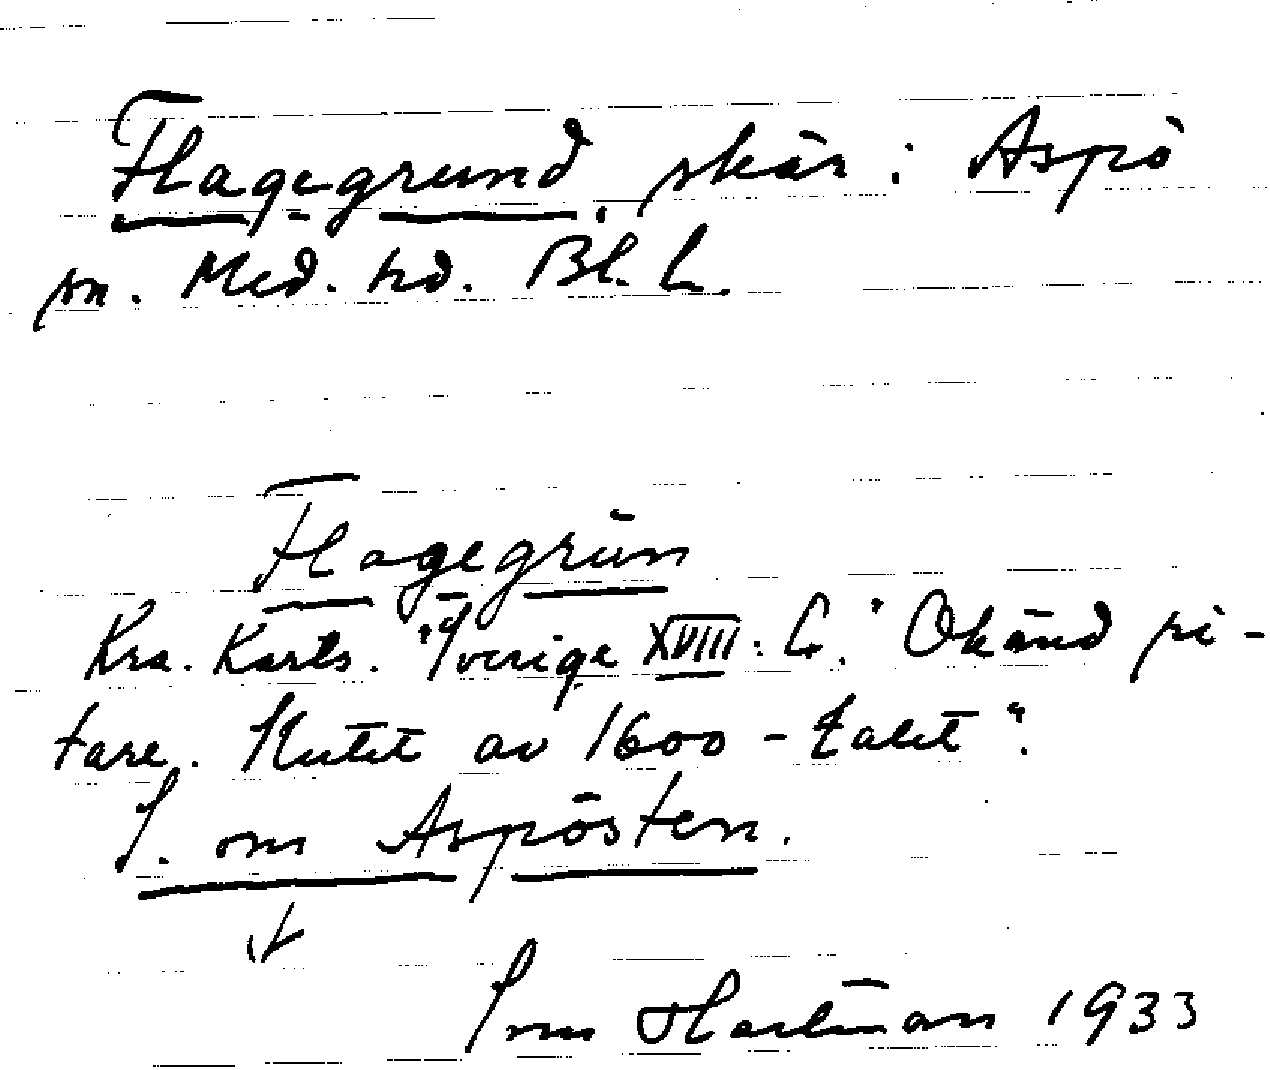 Flagegrund, skär i Aspö
sn. Med. hd. Bl. L.
Flagegrün
Kra. Karts. "Sverige XVIII: 6." Okänd ri-
tare. Slutet av 1600-talet".
S. om Aspösten.
Sven Hartman 1933